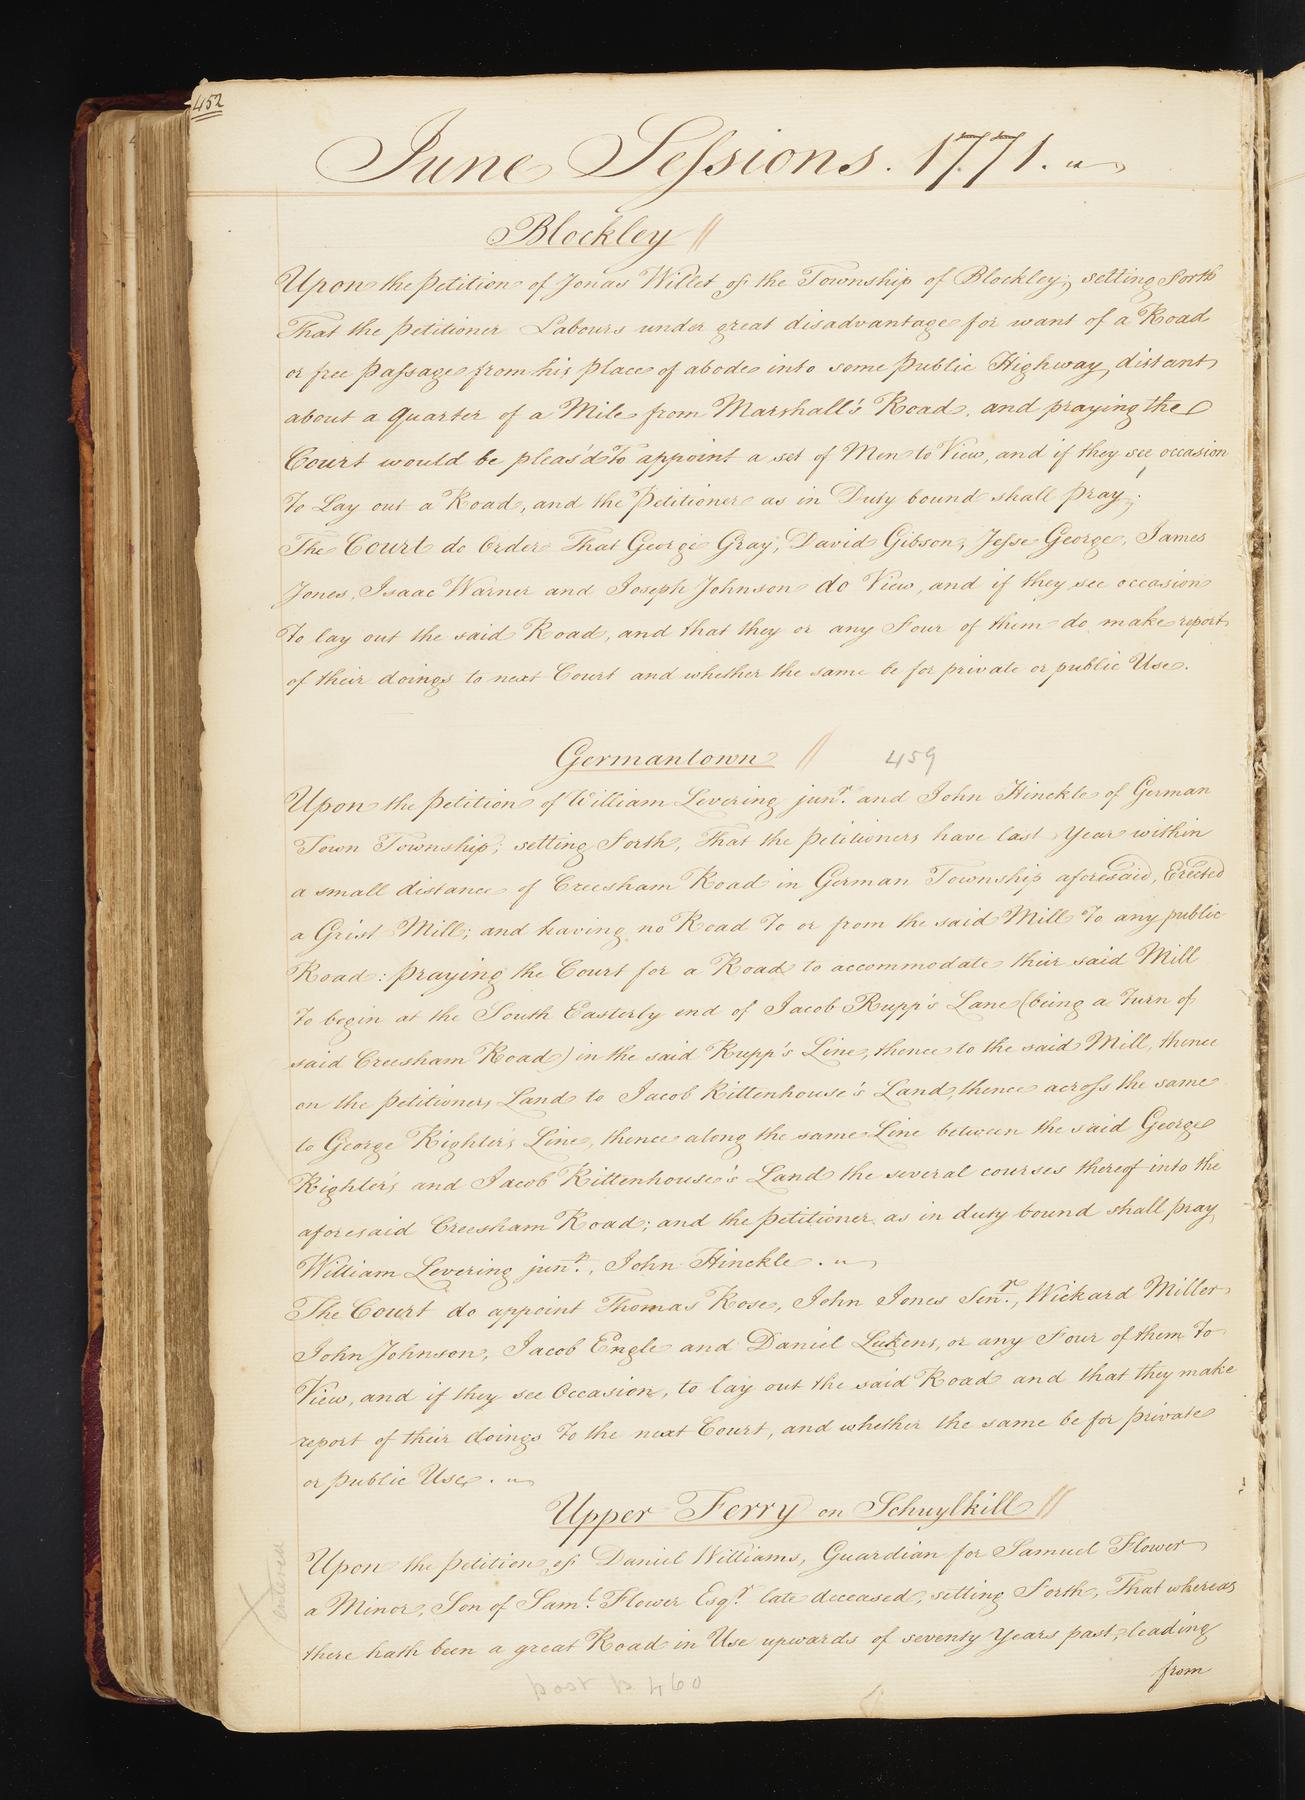 452
June Sessions. 1771.
Blockley //
Upon the Petition of Jonas Willet of the Township of Blockley; setting forth
That the Petitioner Labours under great disadvantage for want of a Road
or free Passage from his place of abode into some Public Highway, distant
about a quarter of a Mile from Marshall's Road, and praying the
Court would be pleas'd To appoint a set of Men to View, and if they see occasion
To Lay out a Road, and the Petitioner as in Duty bound shall Pray;
The Court do Order That George Gray, David Gibson, Jesse George, James
Jones, Isaac Warner and Joseph Johnson do View, and if they see occasion
To lay out the said Road, and that they or any Four of them do make report
of their doings to next Court and whether the same be for private or public Use.
Germantown // 459
Upon the Petition of William Levering junr. and John Hinckle of German
Town Township; setting Forth, That the Petitioners have last Year within
a small distance of Creesham Road in German Township aforesaid, Erected
a Grist Mill; and having no Road To or from the said Mill To any public
Road: praying the Court for a Road to accommodate their said Mill
To begin at the South Easterly end of Jacob Rupp's Lane (being a Turn of
said Creesham Road) in the said Rupp's Line, thence to the said Mill, thence
on the Petitioners Land to Jacob Rittenhouse's Land, thence across the same
to George Righter's Line, thence along the same Line between the said George
Righter's and Jacob Rittenhouse's Land the several courses thereof into the
aforesaid Creesham Road; and the Petitioner as in duty bound shall pray
William Levering junr., John Hinckle.
The Court do appoint Thomas Rose, John Jones Senr., Wickard Miller
John Johnson, Jacob Engle and Daniel Lukens, or any Four of them To
View, and if they see Occasion, to lay out the said Road and that they make
report of their doings To the next Court, and whether the same be for private
or public Use.
Upper Ferry on Schuylkill //
Upon the Petition of Daniel Williams, Guardian for Samuel Flower
a Minor, Son of Saml. Flower Esqr. late deceased, setting Forth, That whereas
there hath been a great Road in Use upwards of seventy Years past, leading
from
entered
post p 460